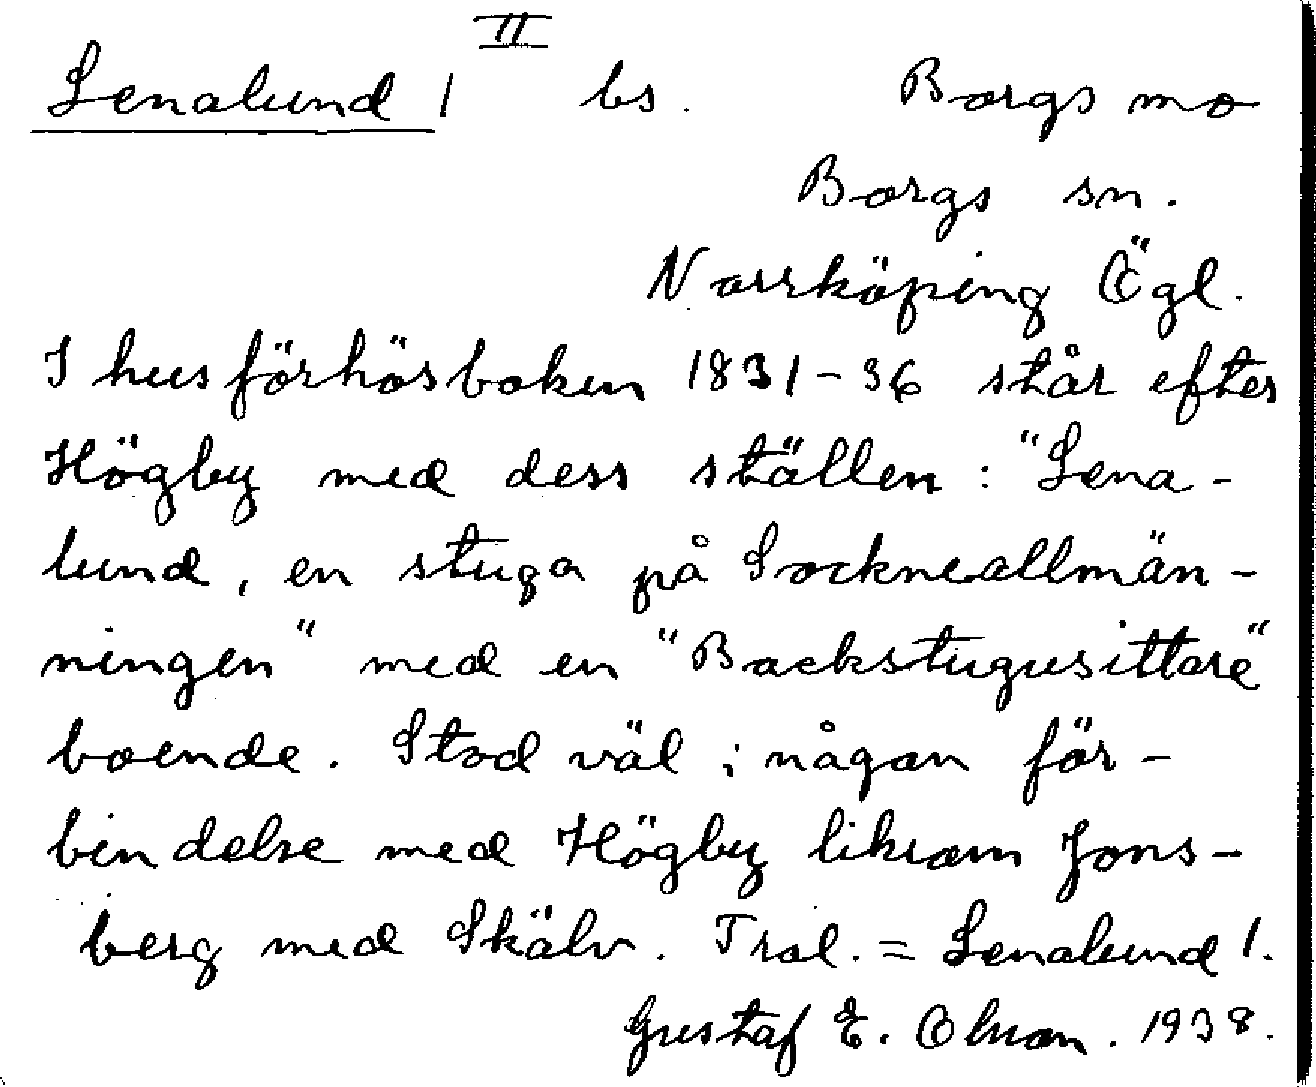 II
Lenalund 1 bs. Borgs mo
Borgs sn.
Norrköping Ögl.
I husförhörsboken 1831-36 står efter
Högby med dess ställen: "Lena-
lund, en stuga på Sockneallmän-
ningen" med en "Backstugusittare"
boende. Stod väl i någon för-
bindelse med Högby liksom Jons-
berg med Skälv. Trol. = Lenalund 1.
Gustaf E. Olsson. 1938.